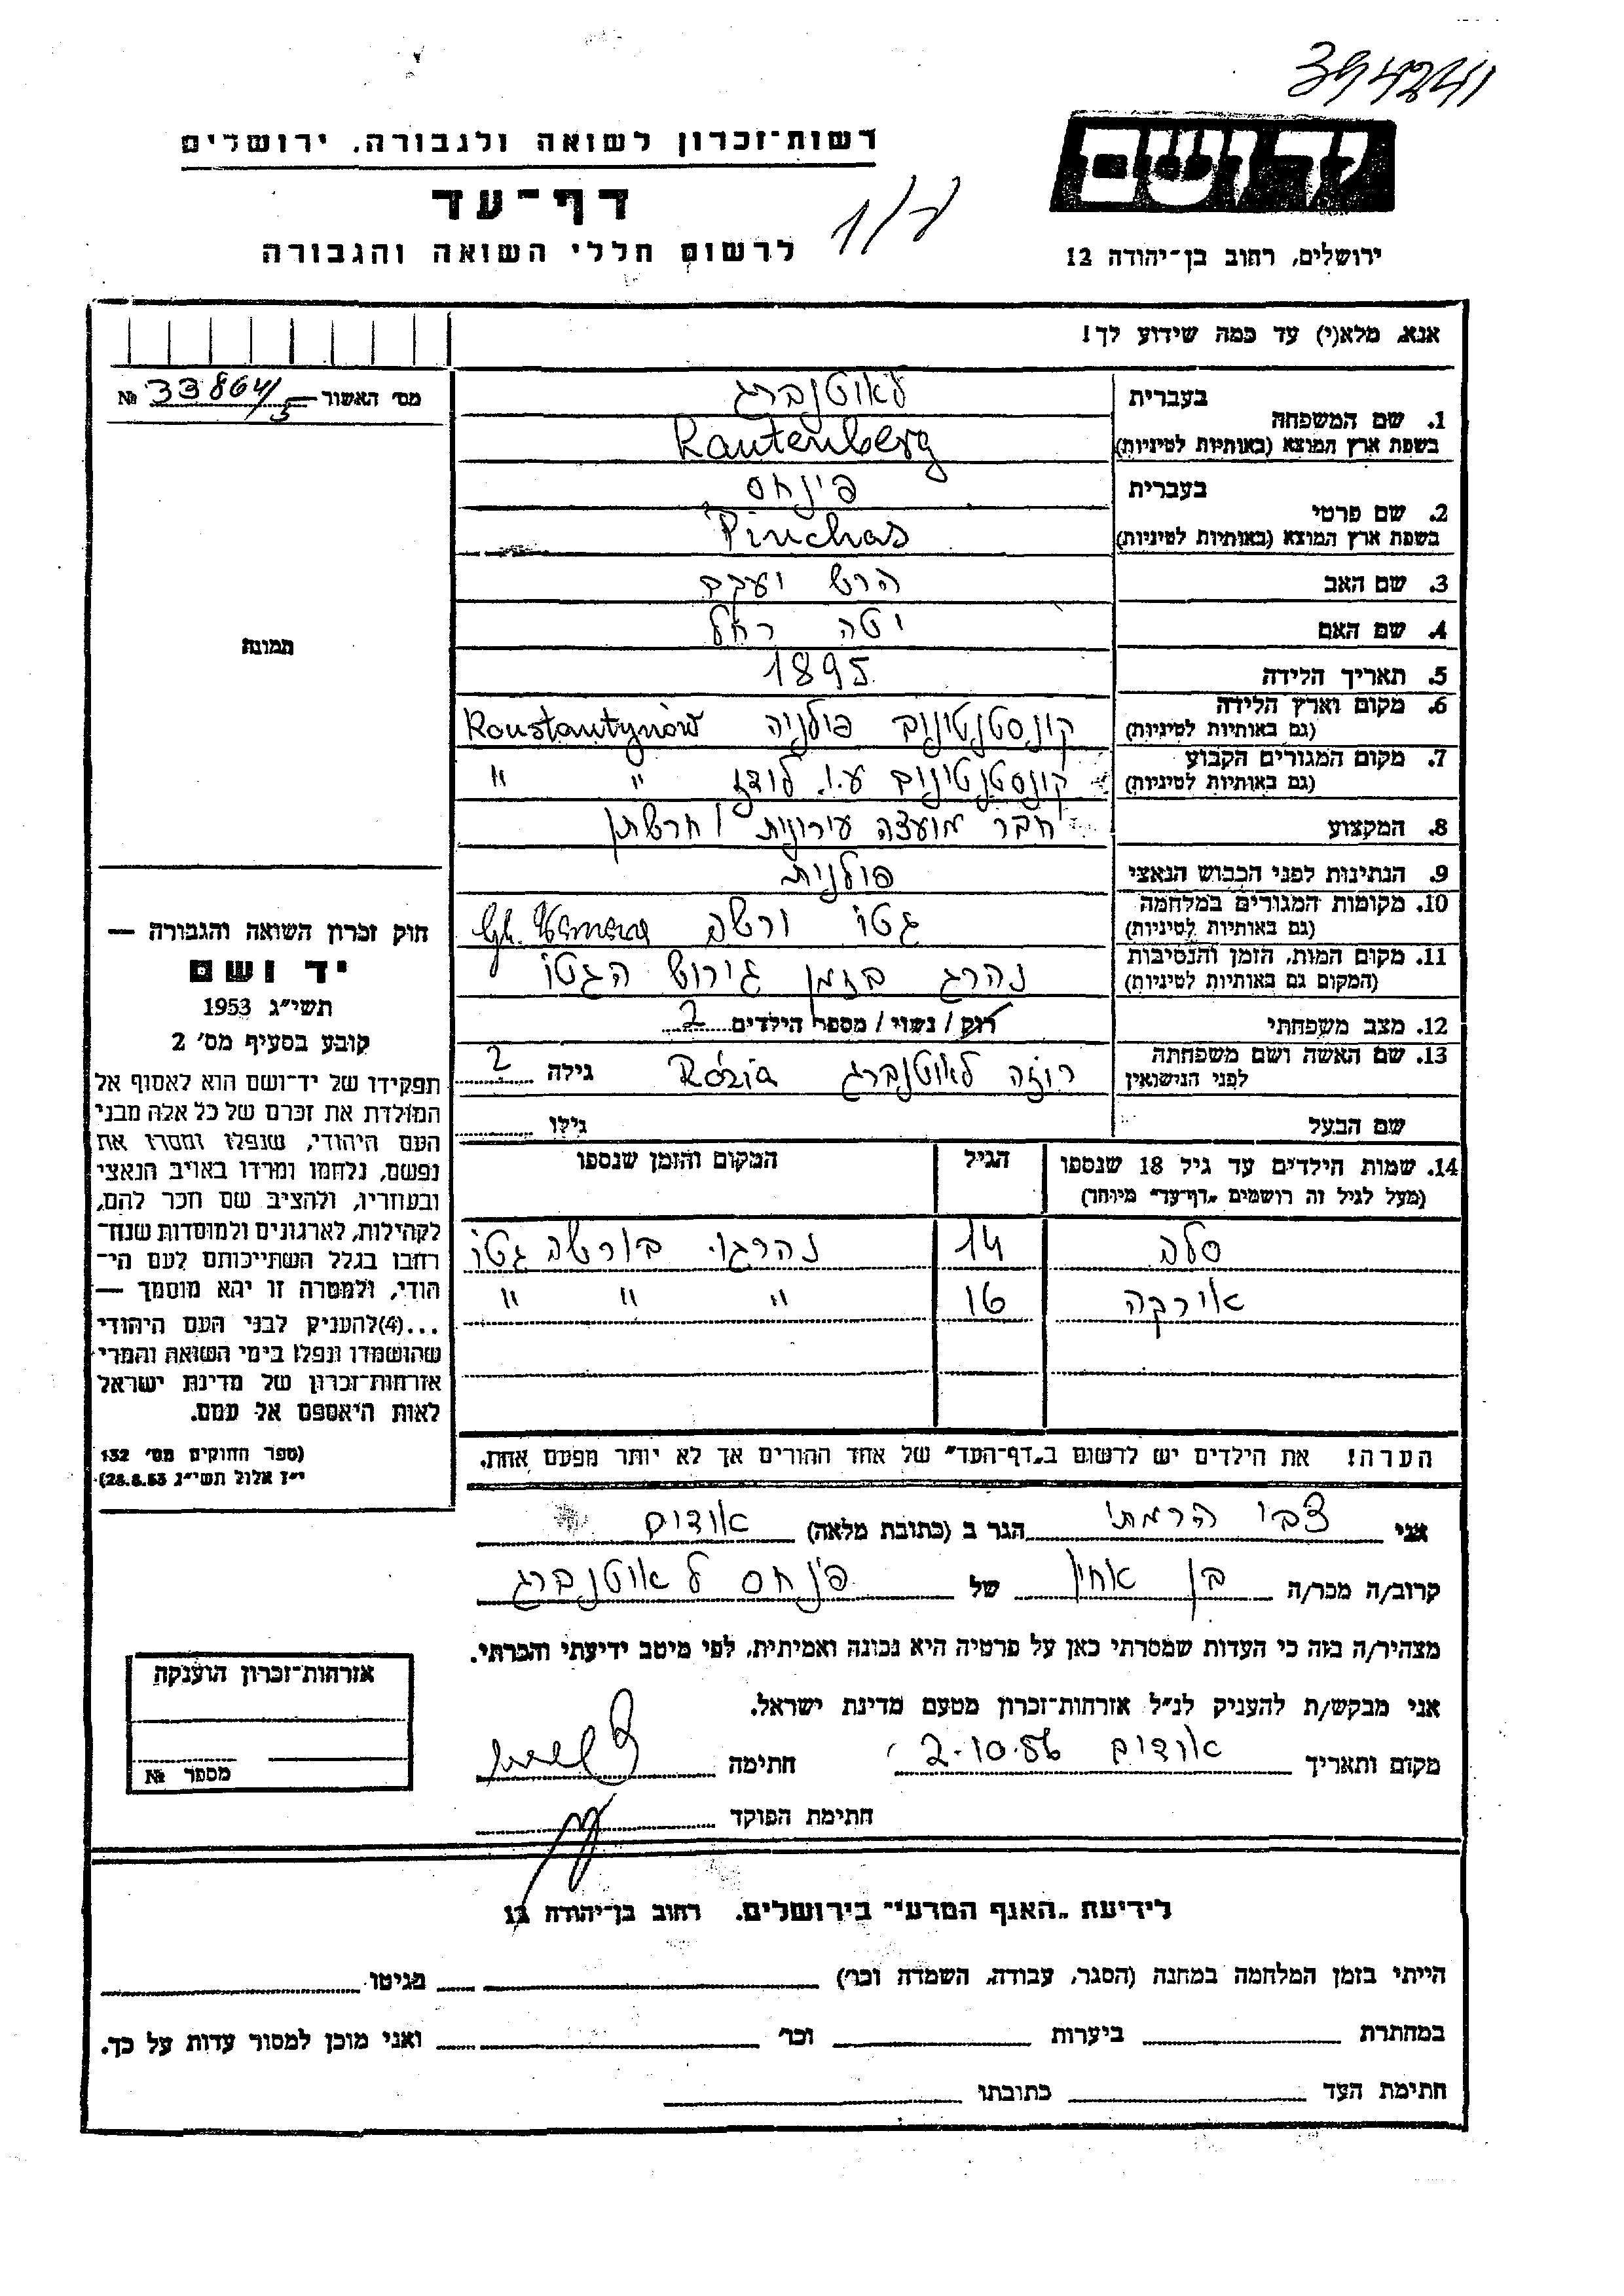 394241
יד ושם
רשות־זכרון לשואה ולגבורה, ירושלים
דף־עד
לרשום חללי השואה והגבורה
ירושלים, רחוב בן־יהודה 12
אנא, מלא(י) עד כמה שידוע לך!
מס׳ האשור № 33864/5
1. שם המשפחה
בעברית לאוטנברג
בשפת ארץ המוצא (באותיות לטיניות) Lautenberg
2. שם פרטי
בעברית פינחס
בשפת ארץ המוצא (באותיות לטיניות) Pinchas
3. שם האב הרש יעקב
4. שם האם יטה רחל
5. תאריך הלידה 1895
6. מקום וארץ הלידה קונסטנטינוב פולניה Konstantynów
(גם באותיות לטיניות)
7. מקום המגורים הקבוע קונסטנטינוב ע.י. לודז׳ " "
(גם באותיות לטיניות)
8. המקצוע חבר מועצה עירונית / חרשתן
9. הנתינות לפני הכבוש הנאצי פולנית
10. מקומות המגורים במלחמה גטו ורשה
(גם באותיות לטיניות)
11. מקום המות, הזמן והנסיבות נהרג בזמן גירוש הגטו
(המקום גם באותיות לטיניות)
12. מצב משפחתי רוק / נשוי / מספר הילדים 2
13. שם האשה ושם משפחתה רוזה לאוטנברג Rózia גילה 2
לפני הנישואין
שם הבעל גילו
14. שמות הילדים עד גיל 18 שנספו הגיל המקום והזמן שנספו
(מעל לגיל זה רושמים „דף־עד״ מיוחד)
סלה 14 נהרגו בורשה גטו
אירקה 16 " " "
הערה! את הילדים יש לרשום ב„דף־העד״ של אחד ההורים אך לא יותר מפעם אחת.
תמונה
חוק זכרון השואה והגבורה —
יד ושם
תשי״ג 1953
קובע בסעיף מס׳ 2
תפקידו של יד־ושם הוא לאסוף אל
המולדת את זכרם של כל אלה מבני
העם היהודי, שנפלו ומסרו את
נפשם, נלחמו ומרדו באויב הנאצי
ובעוזריו, ולהציב שם וזכר להם,
לקהילות, לארגונים ולמוסדות שנח־
רבו בגלל השתייכותם לעם הי־
הודי, ולמטרה זו יהא מוסמך —
...(4) להעניק לבני העם היהודי
שהושמדו ונפלו בימי השואה והמרי
אזרחות־זכרון של מדינת ישראל
לאות היאספם אל עמם.
(ספר החוקים מס׳ 132
י״ז אלול תשי״ג 28.8.53)
אני צבי הרמתי הגר ב (כתובת מלאה) אודים
קרוב/ה מכר/ה בן אחיו של פנחס לאוטנברג
מצהיר/ה בזה כי העדות שמסרתי כאן על פרטיה היא נכונה ואמיתית, לפי מיטב ידיעתי והכרתי.
אני מבקש/ת להעניק לנ״ל אזרחות־זכרון מטעם מדינת ישראל.
מקום ותאריך אודים 2.10.56 חתימה
חתימת הפוקד
אזרחות־זכרון הוענקה
מספר №
לידיעת „האגף המדעי״ בירושלים, רחוב בן־יהודה 12
הייתי בזמן המלחמה במחנה (הסגר, עבודה, השמדה וכו׳) בגיטו
במחתרת ביערות וכו׳ ואני מוכן למסור עדות על כך.
חתימת העד כתובתו